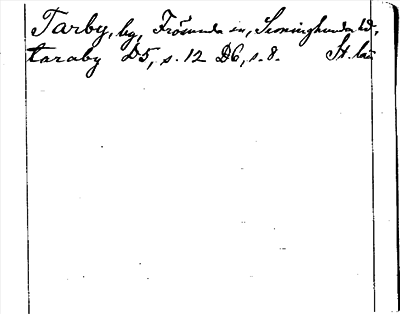 Tarby, by, Frösunda sn, Seminghundra hd,
taraby D5, s. 12 D6, s. 8. St. län